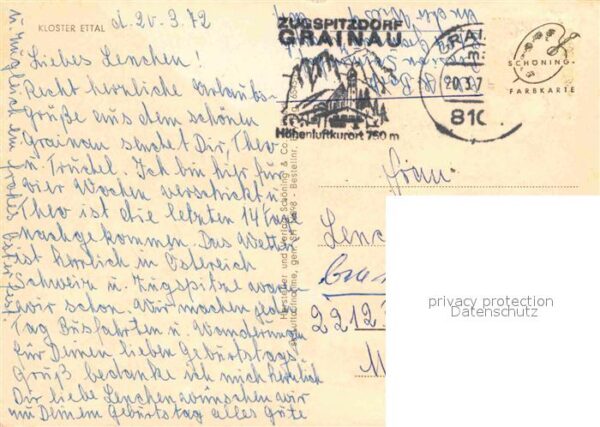 KLOSTER ETTAL
d. 20.3.72
Liebes Lenchen!
Recht herrliche Urlaubs-
grüße aus dem schönen
Grainau sendet Dir, Theo
u. Truchel. Ich bin hier für
vier Wochen verschickt u.
Theo ist die letzten 14 Tage
nachgekommen. Das Wetter
ist herrlich in Östereich
Schweiz u. Zugspitze waren
wir schon. Wir machen jeden
Tag Busfahrten u. Wanderungen
für Deinen lieben Geburtstags-
gruß bedanke ich mich herzlich
Dir liebe Lenchen wünschen wir
zu Deinem Geburtstag alles gute
u. zugleich ein frohes Osterfest
ZUGSPITZDORF
GRAINAU
Höhenluftkurort 750 m
20.3.7
810
SCHÖNING
FARBKARTE
Schöning & Co
Bestellnr.
Frau
Lenc
2212
privacy protection
Datenschutz